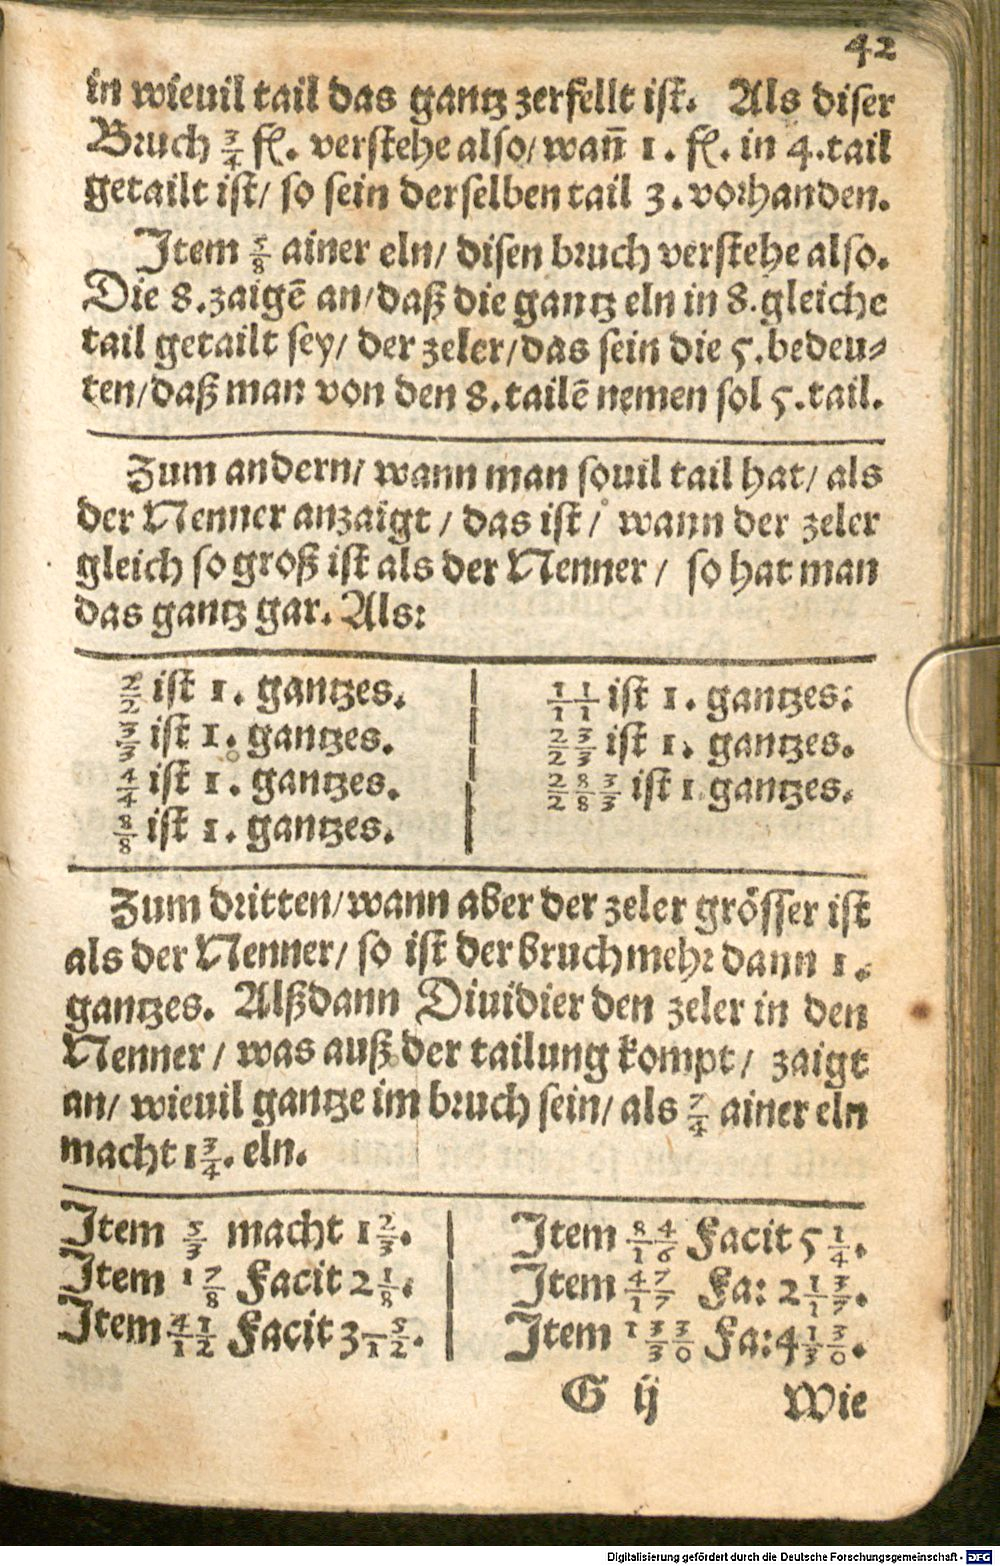 42
in wieuil tail das gantz zerfellt ist. Als diser
Bruch 3/4 fl. verstehe also/ wañ 1. fl. in 4. tail
getailt ist/ so sein derselben tail 3. vorhanden.
Item 5/8 ainer eln/ disen bruch verstehe also.
Die 8. zaigē an/ daß die gantz eln in 8. gleiche
tail getailt sey/ der zeler/ das sein die 5. bedeu⸗
ten/ daß man von den 8. tailē nemen sol 5. tail.
Zum andern/ wann man souil tail hat/ als
der Nenner anzaigt / das ist / wann der zeler
gleich so groß ist als der Nenner / so hat man
das gantz gar. Als:
2/2 ist 1. gantzes.
3/3 ist 1. gantzes.
4/4 ist 1. gantzes.
8/8 ist 1. gantzes.
11/11 ist 1. gantzes:
23/23 ist 1. gantzes.
283/283 ist 1 gantzes.
Zum dritten/ wann aber der zeler grösser ist
als der Nenner/ so ist der bruch mehr dann 1.
gantzes. Alßdann Diuidier den zeler in den
Nenner / was auß der tailung kompt / zaigt
an/ wieuil gantze im bruch sein/ als 7/4 ainer eln
macht 1 3/4. eln.
Item 5/3 macht 1 2/3.
Item 17/8 Facit 2 1/8.
Item 41/12 Facit 3 5/12.
Item 84/16 Facit 5 1/4.
Item 47/17 Fa: 2 13/17.
Item 133/30 Fa: 4 13/30.
G ij Wie
Digitalisierung gefördert durch die Deutsche Forschungsgemeinschaft - DFG